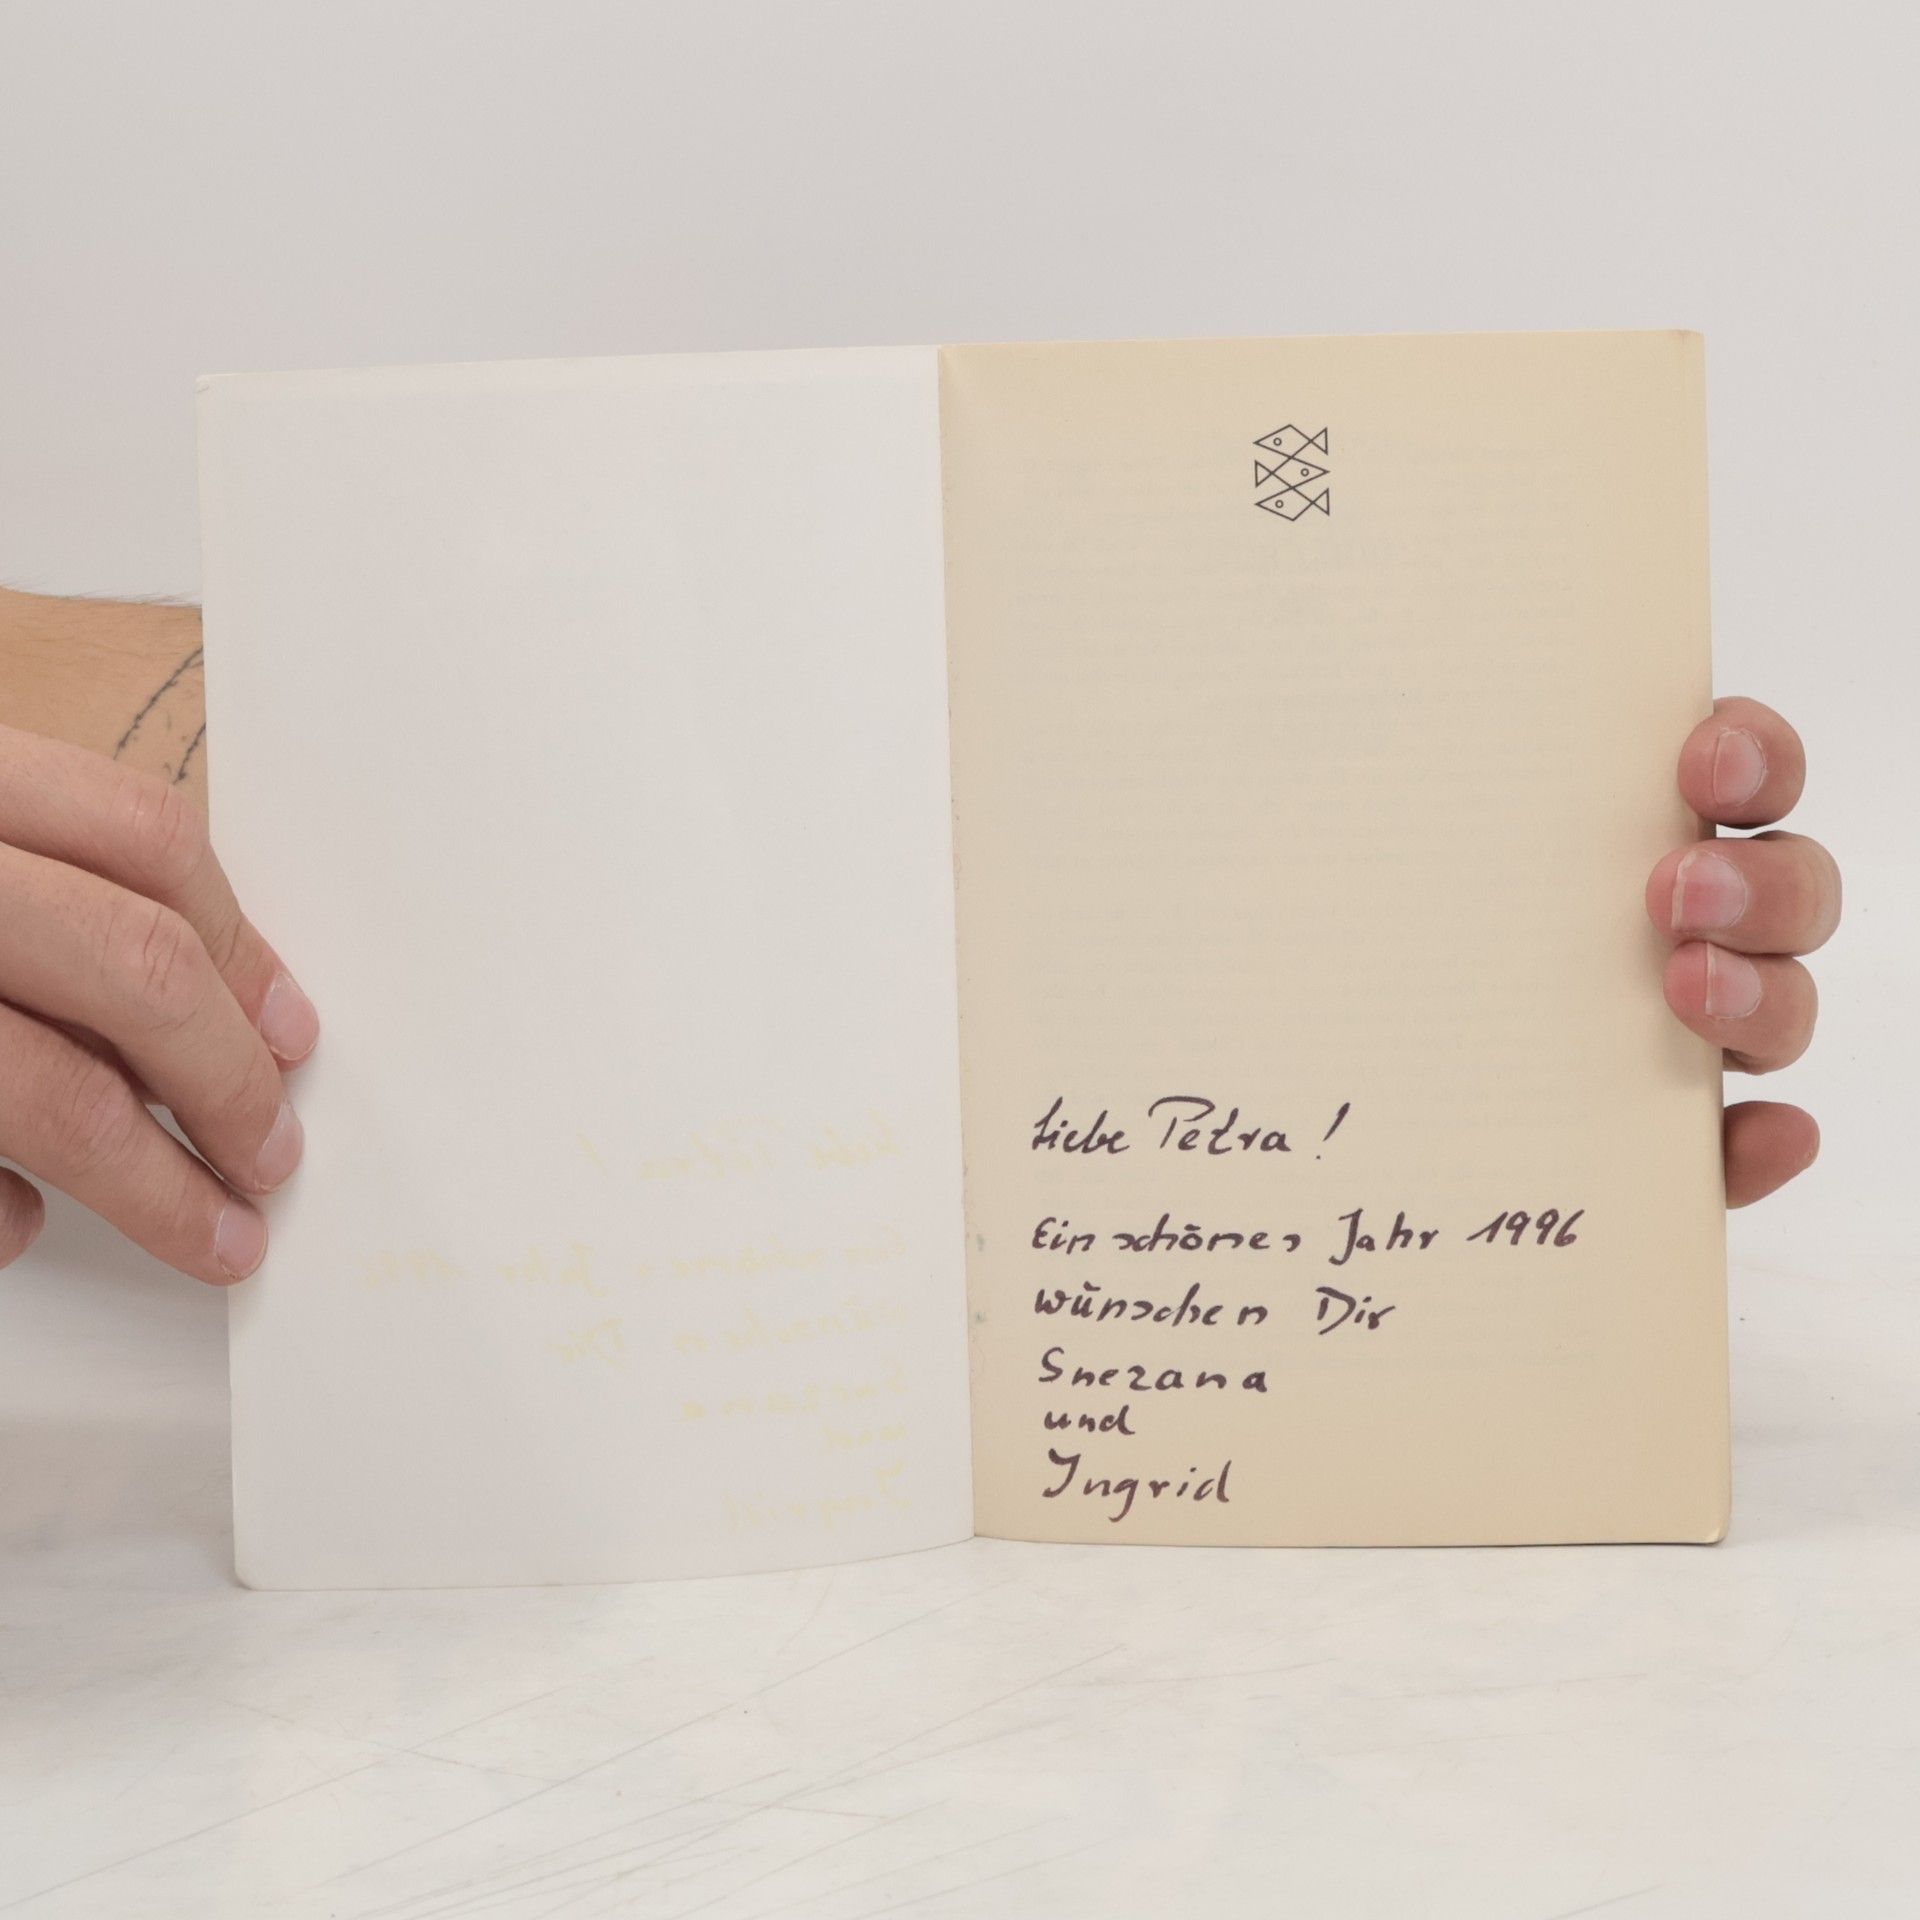 Liebe Petra !
Ein schönes Jahr 1996
wünschen Dir
Snezana
und
Ingrid